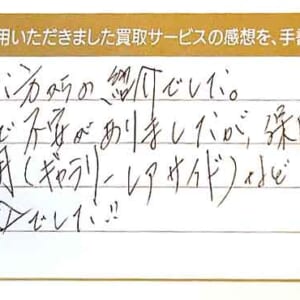 用いただきました買取サービスの感想を、手
方からの紹介でした。
で不安がありましたが、保
(ギャラリーレアサイド)など
でした!!